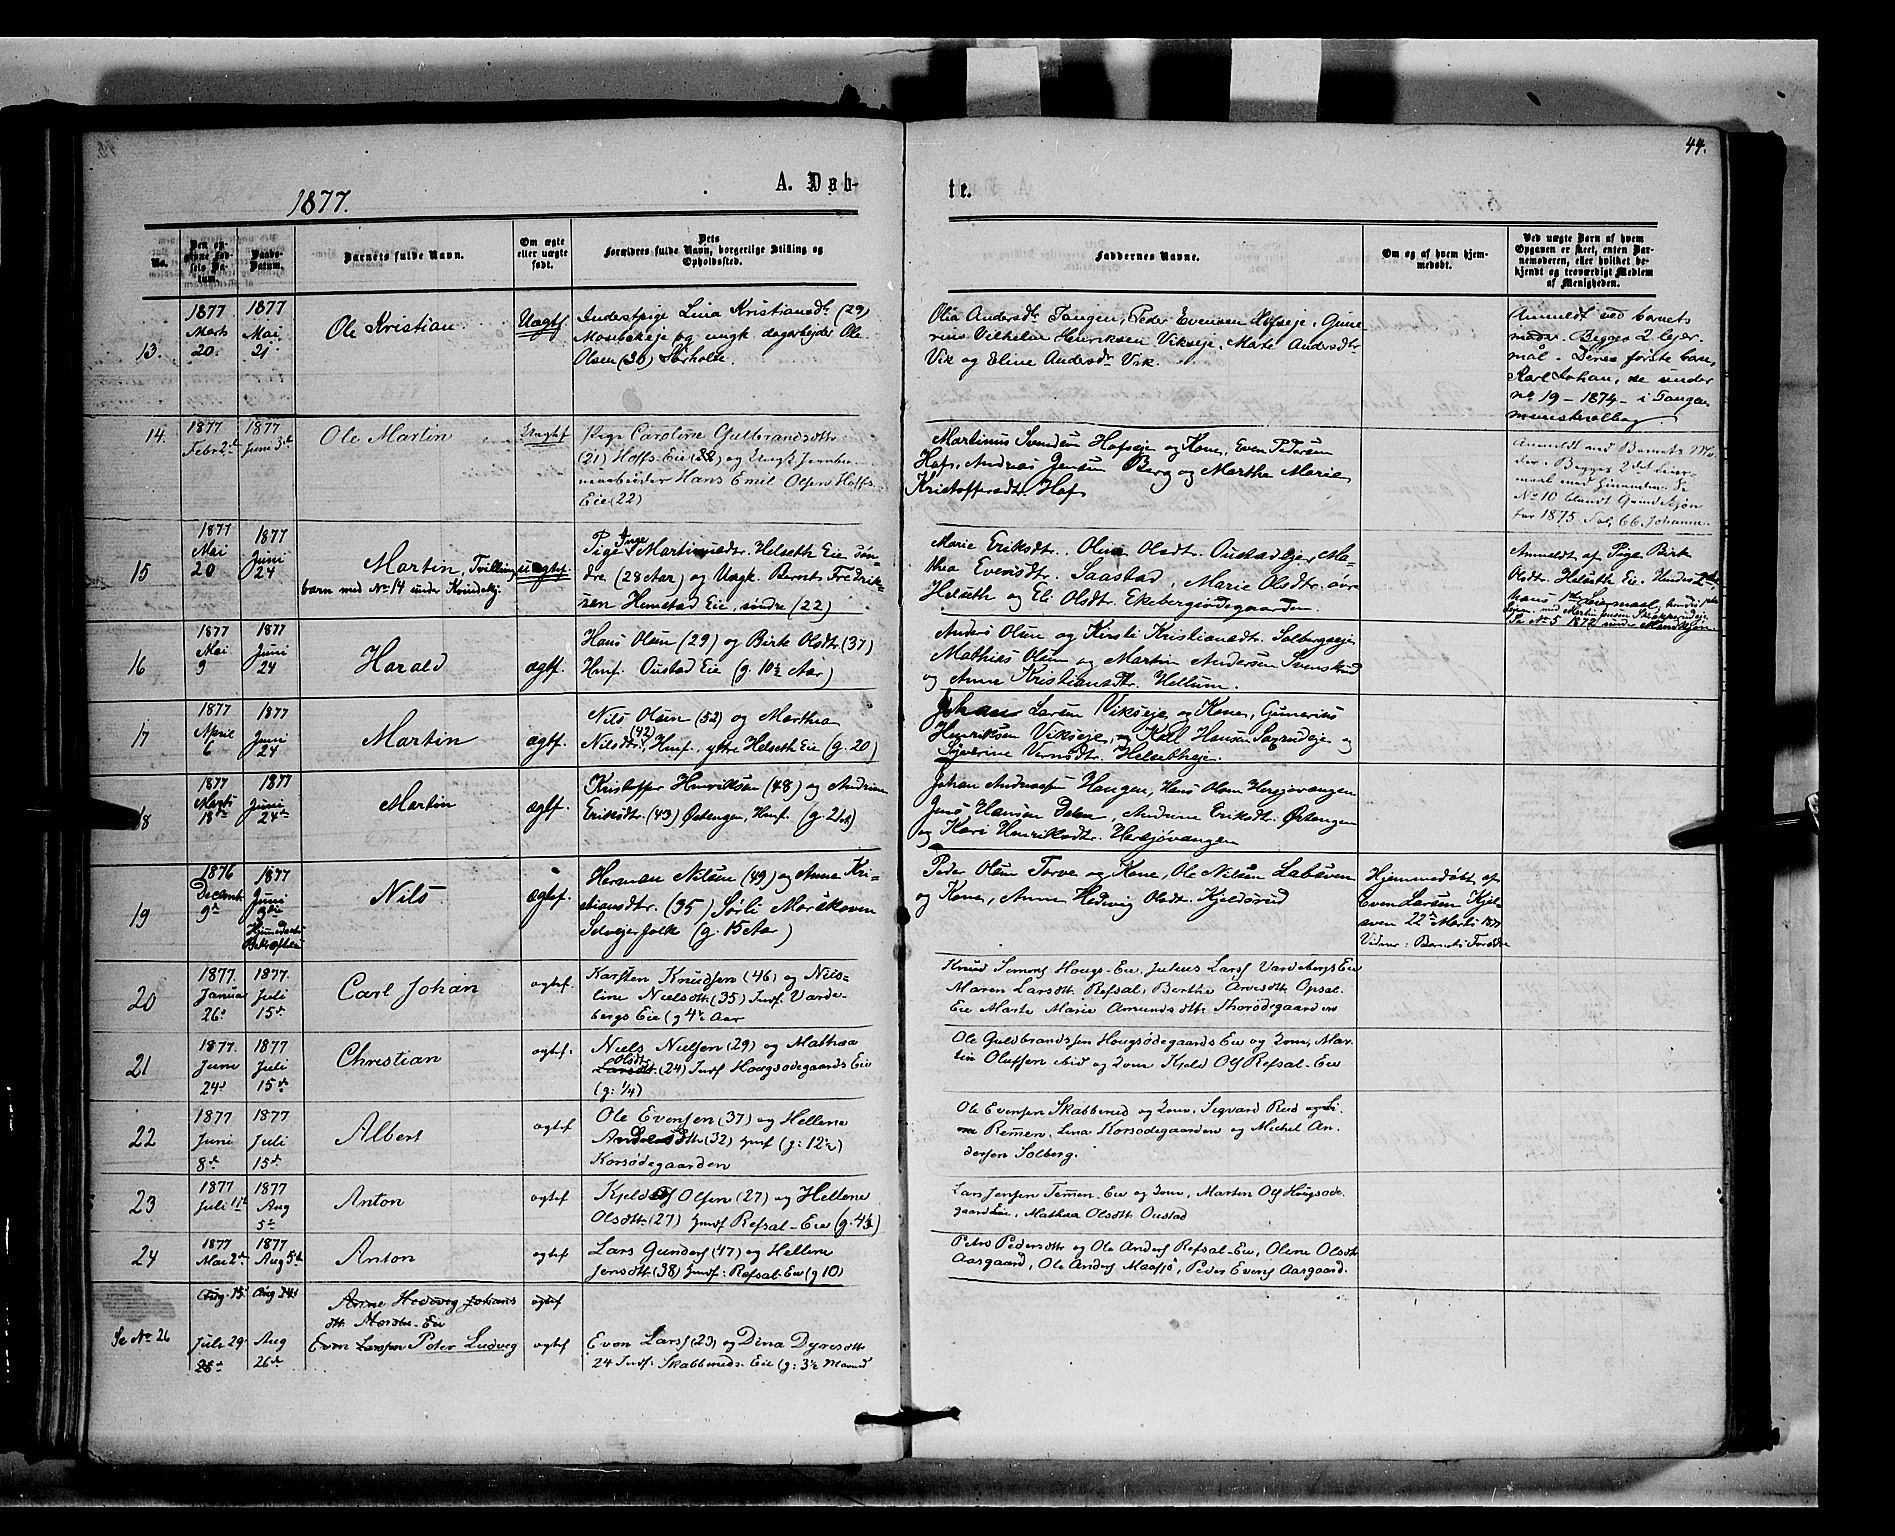 44.
1877.
A. Døb-
te.
No.
Den op-
givne Fød-
sels Da-
tum.
Daabs-
Datum.
Barnets fulde Navn.
Om ægte
eller uægte
født.
Dets
Forældres fulde Navn, borgerlige Stilling og
Opholdssted.
Faddernes Navne.
Om og af hvem hjem-
medøbt.
Ved uægte Barn af hvem
Opgaven er skeet, enten Bar-
nemoderen, eller hvilket be-
kjendt og troværdigt Medlem
af Menigheden.
13.
1877
Marts
20.
1877
Mai
21
Ole Kristian
Uægtf
Inderstpige Lina Kristiansdr (29)
Mosbekeje og ungk. dagarbejder Ole
Olsen (36) Sørholte.
Olia Andersdr Tangen, Peder Evensen Hofseje, Gune-
rius Vilhelm Henriksen Vikseje, Marte Andersdtr
Vik og Eline Andersdr Vik.
Anmeldt ved barnets
moder. Begges 2. lejer-
mål. Deres første barn,
Karl Johan, se under
no 19 - 1874 - i Tangen
ministerialbog.
14.
1877
Febr 2de
1877
Juni 3de
Ole Martin
Uægtf
Pige Caroline Gulbrandsdtr
(21) Hoffs-Eie (22) og Ungk. Jernba-
nearbeider Hans Emil Olsen Hoffs
Eie (22)
Martinus Svendsen Hofseje og Kone, Even Pedersen
Hof, Andreas Jensen Berg og Marthe Marie
Kristoffersdtr. Hof
Anmeldt ved Barnets Mo-
der. Begges 2det Leier-
maal med hinanden. Se
No 10 blandt Qvindekjøn
for 1875. Fol. 66. Johanne.
15
1877
Mai
20
1877
Juni
24
Martin, Tvilling-
barn med No 14 under Kvindekj.
uægtef.
Pige Inge Martinsdtr. Helseth Eie søn-
dre (28 Aar) og Ungk. Bernt Fredrik-
sen Hemstad Eie, søndre (22)
Marie Eriksdtr. Oline Olsdtr. Oustadejer, Ma-
thea Evensdtr. Saastad, Marie Olsdtr. øvre
Helseth og Eli Olsdtr. Ekebergsødegaarden.
Anmeldt af Pige Birte
Olsdtr. Helseth Eie. Hendes 2det,
hans 1ste Leiermaal, hendes 1ste
Se No 5 1872 under Mandkjøn
16
1877
Mai
9
1877
Juni
24
Harald
ægtf.
Hans Olsen (29) og Birte Olsdtr. (37)
Hmf. Oustad Eie (g. 10½ Aar)
Anders Olsen og Kirsti Kristiansdtr. Solbergseje
Mathias Olsen og Martin Andersen Svenskrud
og Anne Kristiansdtr. Hellum.
17
1877
April
6
1877
Juni
24
Martin
ægtf.
Nils Olsen (52) og Marthea
Nilsdtr. (42) Hmf. ytre Helseth Eie (g. 20)
Johan Larsen Vikseje og Kone, Gunerius
Henriksen Vikseje, og Karl Hansen Sagrudeje og
Syverine Berntsdtr. Helsetheje.
18
1877
Marts
18de
1877
Juni
24de
Martin
ægtf.
Kristoffer Henriksen (48) og Andrine
Eriksdtr. (43) Østengen, Hmf. (g. 21)
Johan Andreassen Haugen, Hans Olsen Hersjøvangen
Jens Hansen Dalen, Andrine Eriksdtr. Østengen
og Kari Henriksdtr. Hersjøvangen
19
1876
Decemb.
9de
1877
Juni
9de
Hjemmedaab
Bekræftelse
Nils
ægtef.
Herman Nilsen (49) og Anne Kri-
stiansdtr. (35) Sørli Morskoven
Selvejerfolk (g. 15 Aar)
Peder Olsen Torve og Kone, Ole Nilsen Labsven
og Kone, Anne Hedvig Olsdtr. Kjeldsrud
Hjemmedøbt af
Even Larsen Kjel-
sven 22de Marts 1877
Vidner: Barnets Forældre
20
1877.
Januar
26de
1877.
Juli
15de
Carl Johan
ægtef.
Karsten Knudsen (46) og Niels-
line Nielsdtr. (35) Indf. Varde-
bergs Eie (g 4½ Aar
Knud Simons Hougs-Eie, Julius Lars Vardebergs Eie
Maren Larsdtr. Refsal, Berthe Arvesdtr. Opsal-
Eie Marte Marie Amundsdtr. Thorødegaarden
21
1877.
Juni
24de
1877
Juli
15de
Christian
ægtef.
Niels Nielsen (29) og Mathea
Olsdtr.
Larsdtr. (24) Indf Hougsødegaards Eie
(g: ¼)
Ole Guldbrandsen Hougsødegaards Eie og Kone, Mar-
tin Olufsen ibid og Kone Kjeld Ols Refsal-Eie
22
1877
Juni
8de
1877
Juli
15de
Albert
ægtef.
Ole Evensen (37) og Hellene
Andersdtr. (32) Hmf (g: 12½)
Korsødegaarden
Ole Evensen Skabberud og Kone, Segvard Rud og Li-
ne Remen. Lina Korsødegaarden og Michel An-
dersen Solberg.
23
1877
Juli 11te
1877
Aug
5te
Anton
ægtef.
Kjeld Olsen (27) og Hellene
Olsdtr. (27) Hmf Refsal-Eie (g. 4½)
Lars Jensen Temen-Eie og Kone, Martin Ols Hougsøde-
gaards Eie, Mathea Olsdtr. Oustad
24
1877
Mai 2de
1877
Aug 5te
Anton
ægtef.
Lars Gunders (47) og Hellene
Jensdtr. (38) Hmf: Refsal-Eie (g 10)
Petro Pedersdtr. og Ole Anders Refsal-Eie, Oline Olsdtr.
Aasgaard, Ole Anders Maasjø, Peder Evens Aasgaard.
Aug. 15
Aug 24
Anne Hedevig Johans
ægtef
Se No 26
Juli 29
Aug
26de
Even Larssen Peter Ludvig
ægtef
Even Lars (23) og Dina Dyresdtr.
24 Indf: Skabberuds-Eie (g: 3½ Maaned